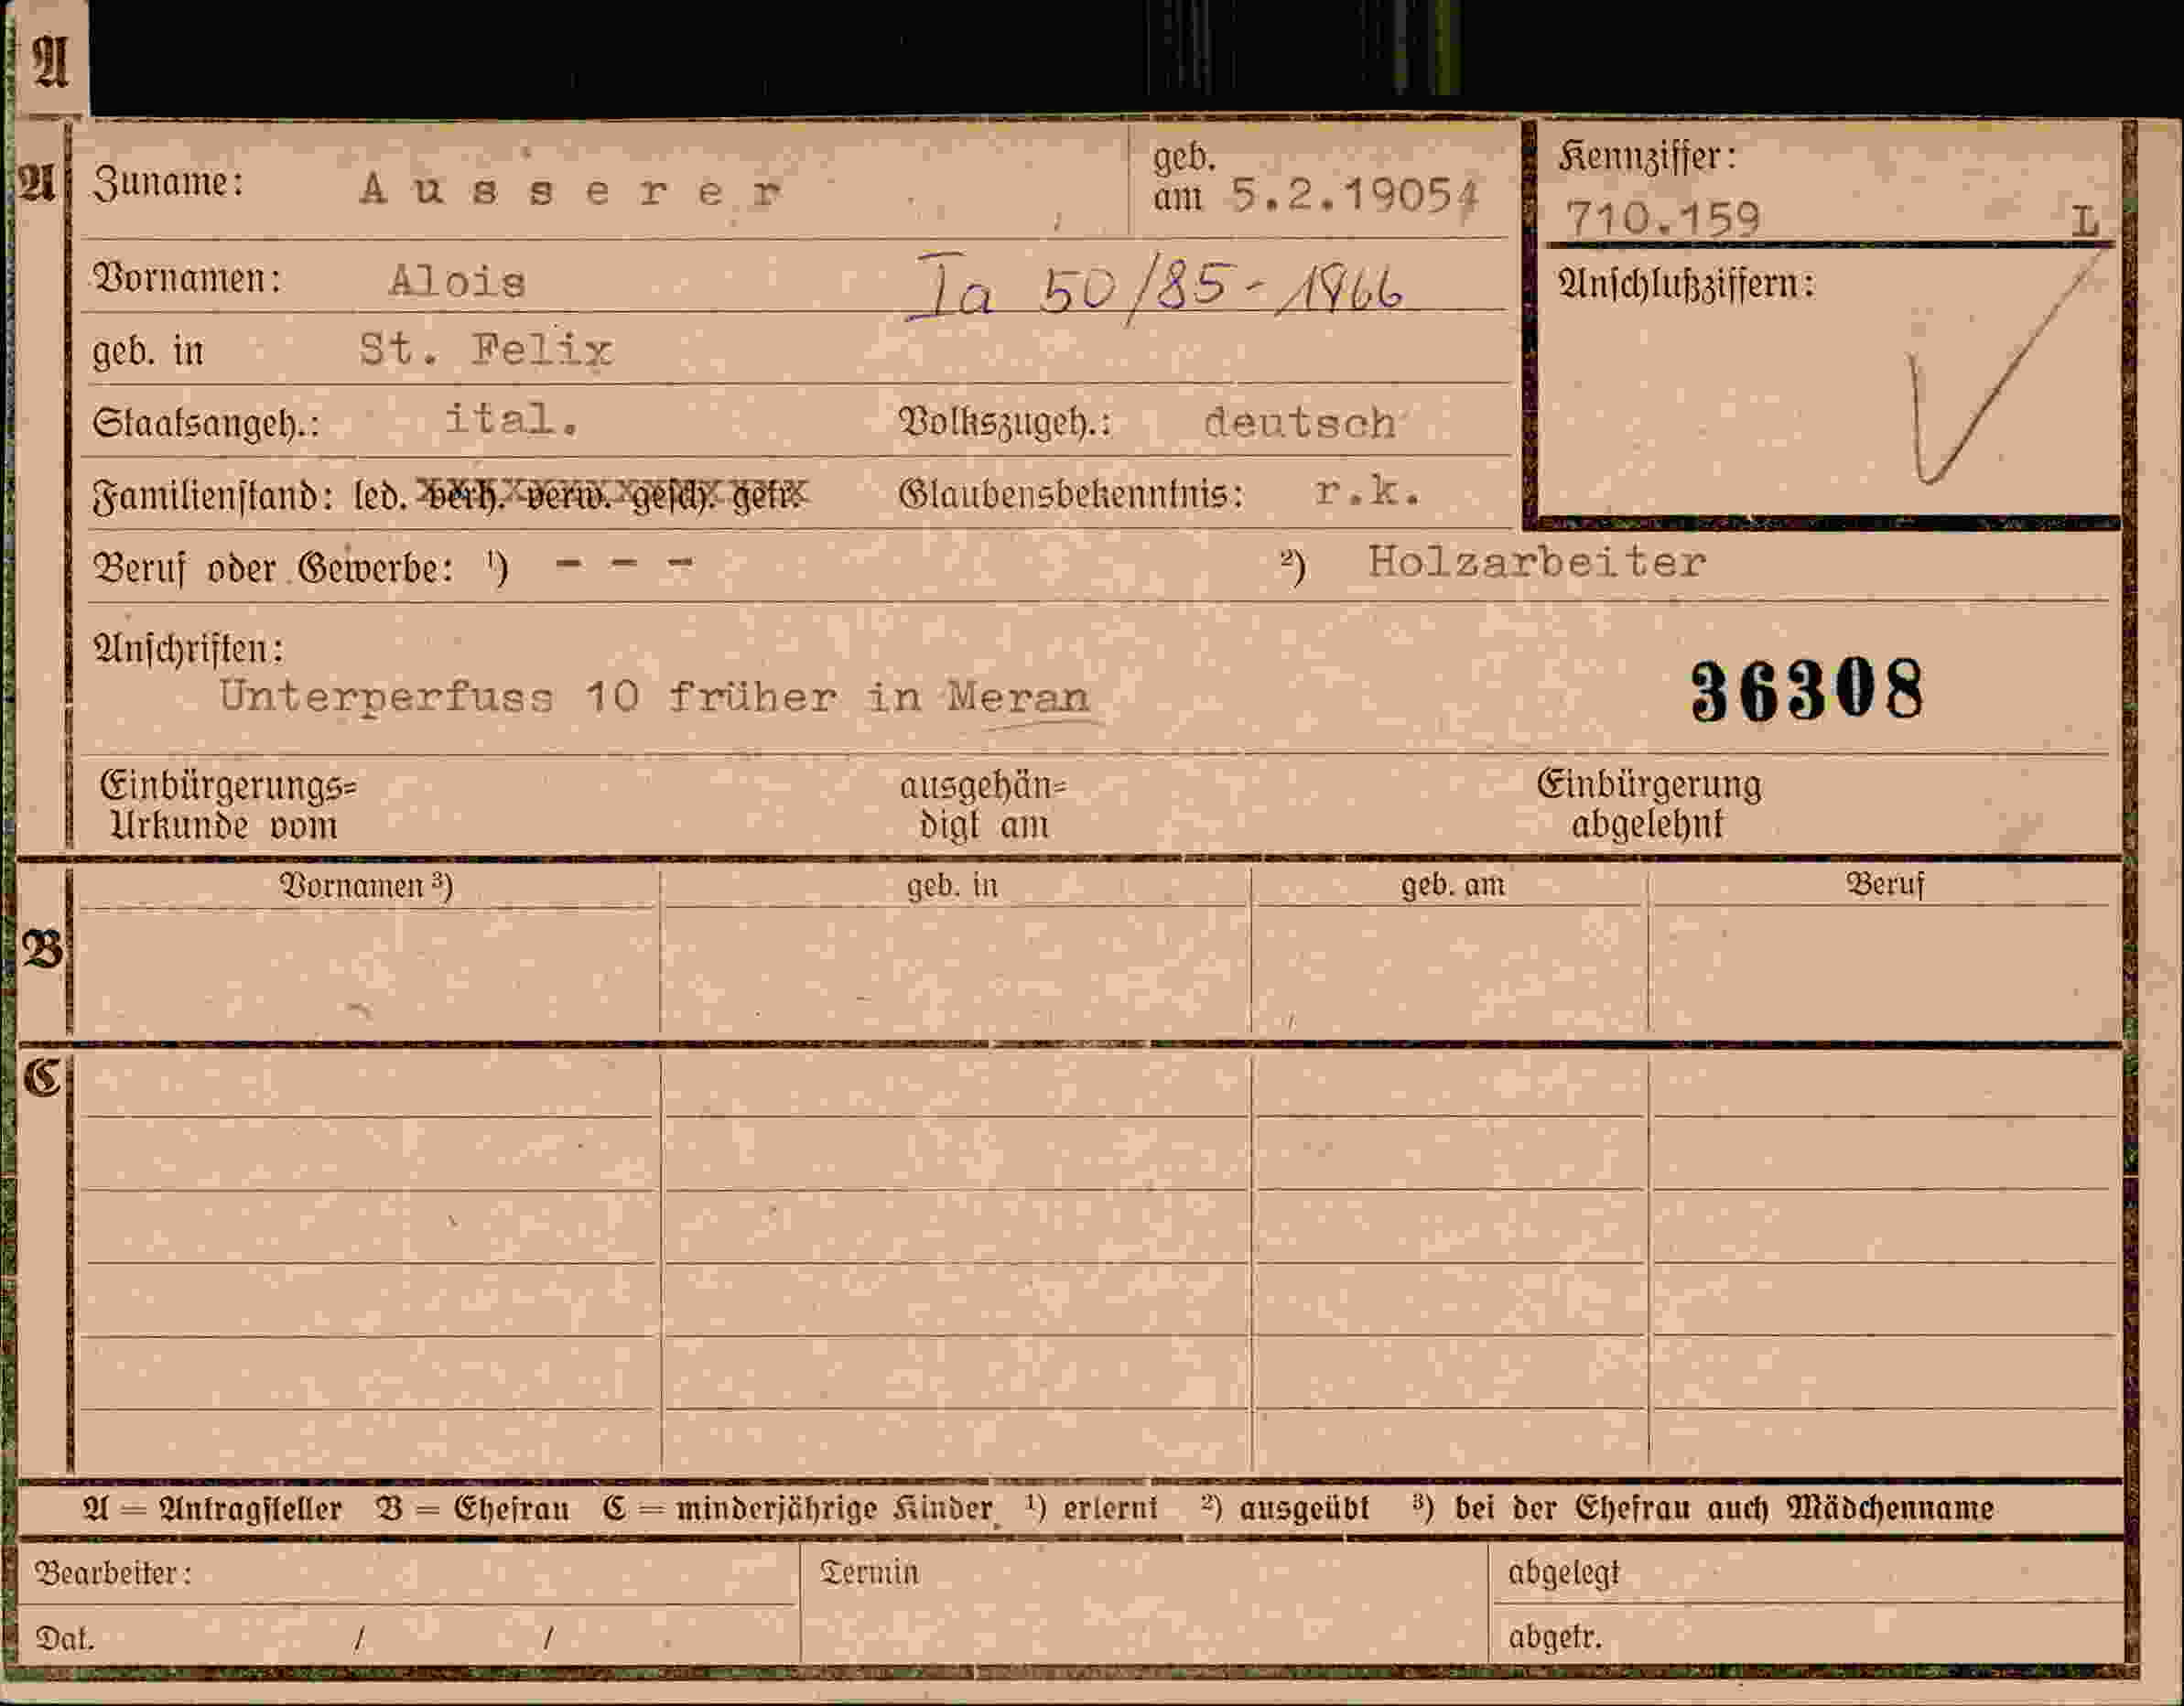 A
A
Zuname: Ausserer
geb. am 5.2.1905
Kennziffer:
710.159 L
Vornamen: Alois
Ia 50/85-1966
Anschlußziffern:
geb. in St. Felix
Staatsangeh.: ital. Volkszugeh.: deutsch
Familienstand: led. verh. verw. gesch. getr. Glaubensbekenntnis: r.k.
Beruf oder Gewerbe: ¹) - - - ²) Holzarbeiter
Anschriften:
Unterperfuss 10 früher in Meran
36308
Einbürgerungs= ausgehän= Einbürgerung
Urkunde vom digt am abgelehnt
B
Vornamen ³) geb. in geb. am Beruf
C
A = Antragsteller B = Ehefrau C = minderjährige Kinder ¹) erlernt ²) ausgeübt ³) bei der Ehefrau auch Mädchenname
Bearbeiter: Termin abgelegt
Dat. / / abgetr.